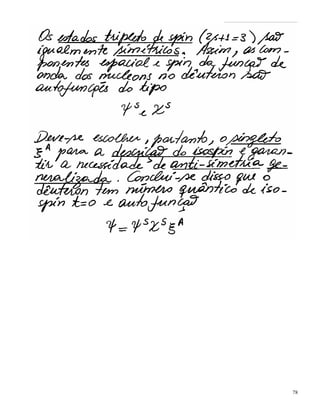 Os estados tripleto de spin (2s+1=3) são
igualmente simétricos. Assim, as com-
ponentes espacial e spin da função de
onda dos nucleons no dêuteron são
autofunções do tipo
ψˢ e χˢ
Deve-se escolher, portanto, o singleto
ξᴬ para a descrição do isospin e garan-
tir a necessidade de anti-simetria ge-
neralizada. Conclui-se disso que o
dêuteron tem número quântico de iso-
spin t=0 e autofunção
ψ = ψˢχˢξᴬ
78